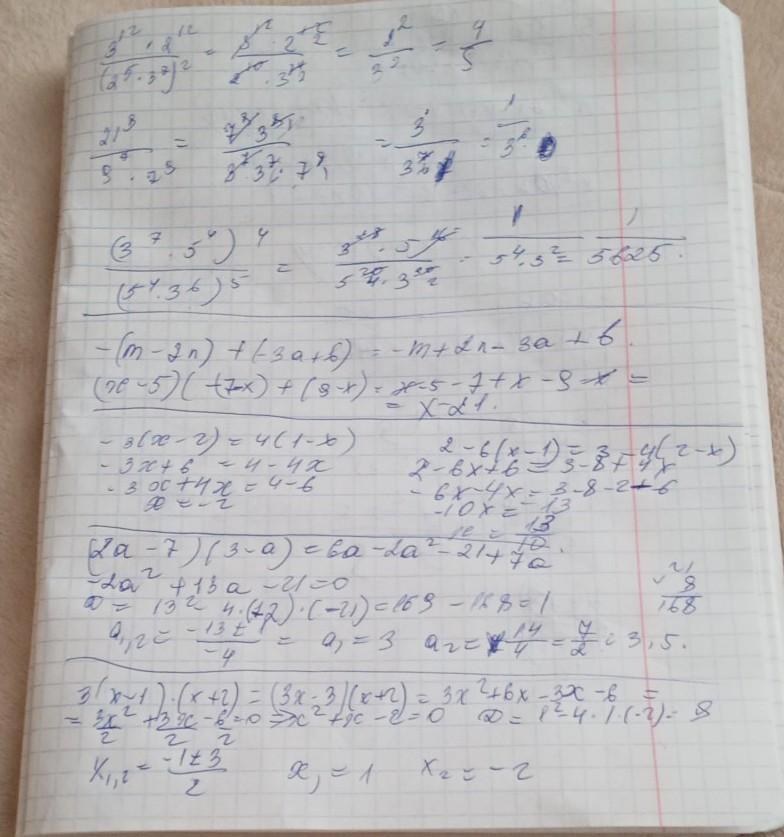 3^12 · 2^12 / (2^5 · 3^7)^2 = 3^12 · 2^12 / 2^10 · 3^14 = 2^2 / 3^2 = 4 / 9
21^9 / 9^7 · 7^9 = 7^9 3^9 / 3^7 · 3^7 · 7^9 = 3 / 3^7 = 1 / 3^6
(3^7 · 5^4)^4 / (5^4 · 3^6)^5 = 3^28 · 5^16 / 5^20 · 3^30 = 1 / 5^4 · 3^2 = 1 / 5625.
-(m-2n) + (-3a+b) = -m+2n-3a+b.
(x-5) (-7-x) + (9-x) = x-5-7+x-9-x =
= x-21.
-3(x-2) = 4(1-x)
-3x+6 = 4-4x
-3x+4x = 4-6
x = -2
2-6(x-1) = 3-4(2-x)
2-6x+6 = 3-8+4x
-6x-4x = 3-8-2-6
-10x = -13
x = 13 / 10.
(2a-7)(3-a) = 6a-2a²-21+7a
-2a²+13a-21=0
D = 13² - 4·(-2)·(-21) = 169-168 = 1
21
8
168
a1,2 = -13±1 / -4 = a1 = 3 a2 = 14 / 4 = 7 / 2 = 3,5.
3(x-1)·(x+2) = (3x-3)(x+2) = 3x²+6x-3x-6 =
= 3x² / 2 + 3x / 2 - 6 / 2 = 0 => x²+x-2=0 D = 1²-4·1·(-2) = 9
x1,2 = -1±3 / 2 x1 = 1 x2 = -2